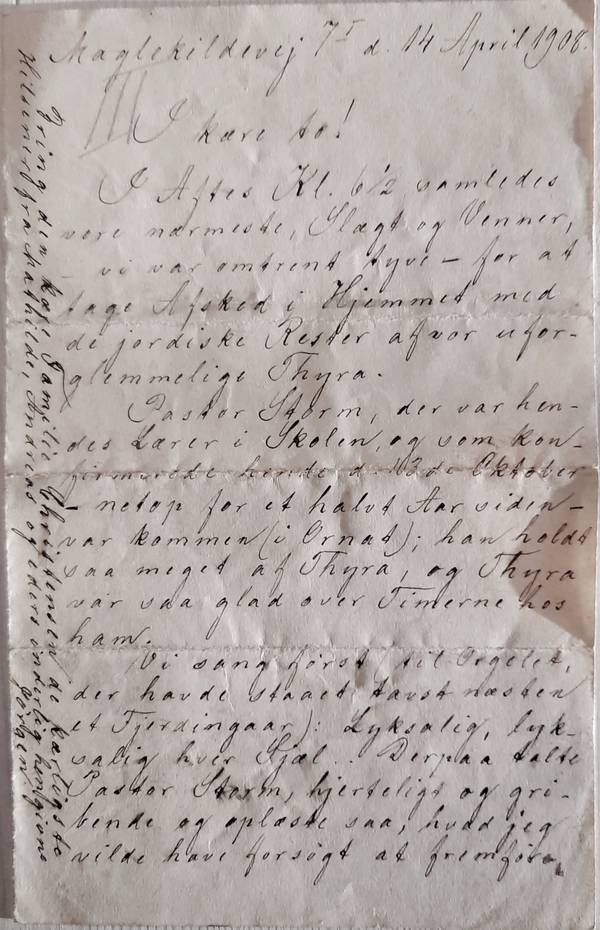 Maglekildevej 7 I d. 14 April 1908.
III
I kære to!
I Aftes Kl. 6½ samledes
vore nærmeste, Slægt og Venner,
– vi var omtrent tyve – for at
tage Afsked i Hjemmet med
de jordiske Rester af vor ufor-
glemmelige Thyra.
Pastor Storm, der var hen-
des Lærer i Skolen, og som kon-
firmerede hende d. 13de Oktober
– netop for et halvt Aar siden –
var kommen (i Ornat); han holdt
saa meget af Thyra, og Thyra
var saa glad over Timerne hos
ham.
Vi sang først (til Orgelet,
der havde staaet tavst næsten
et Fjerdingaar): Lyksalig, lyk-
salig hver Sjæl.. Derpaa talte
Pastor Storm, hjerteligt og gri-
bende og oplæste saa, hvad jeg
vilde have forsøgt at fremføre,
Bring den kære Familie Christensen de kærligste
Hilsener fra Mathilde, Andreas og eders inderlig hengivne
Jørgen.